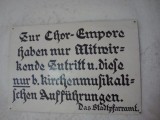 Zur Chor-Empore
haben nur Mitwir-
kende Zutritt u. diese
nur b. kirchenmusikali-
schen Aufführungen.
Das Stadtpfarramt.